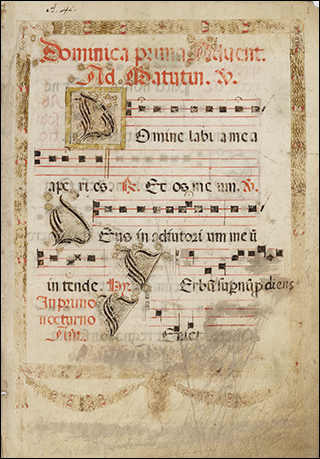 Dominica prima Advent.
Ad Matutin. ℣.
Domine labia mea
aperies. ℟. Et os meum. ℣.
Deus in adiutorium meū
intende. Hy. Verbū supnū pdiens
In primo
nocturno